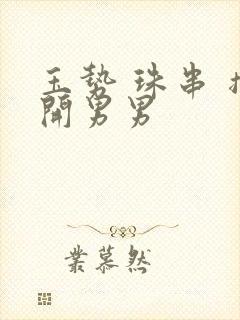 玉势 珠串
開男男
業慕然